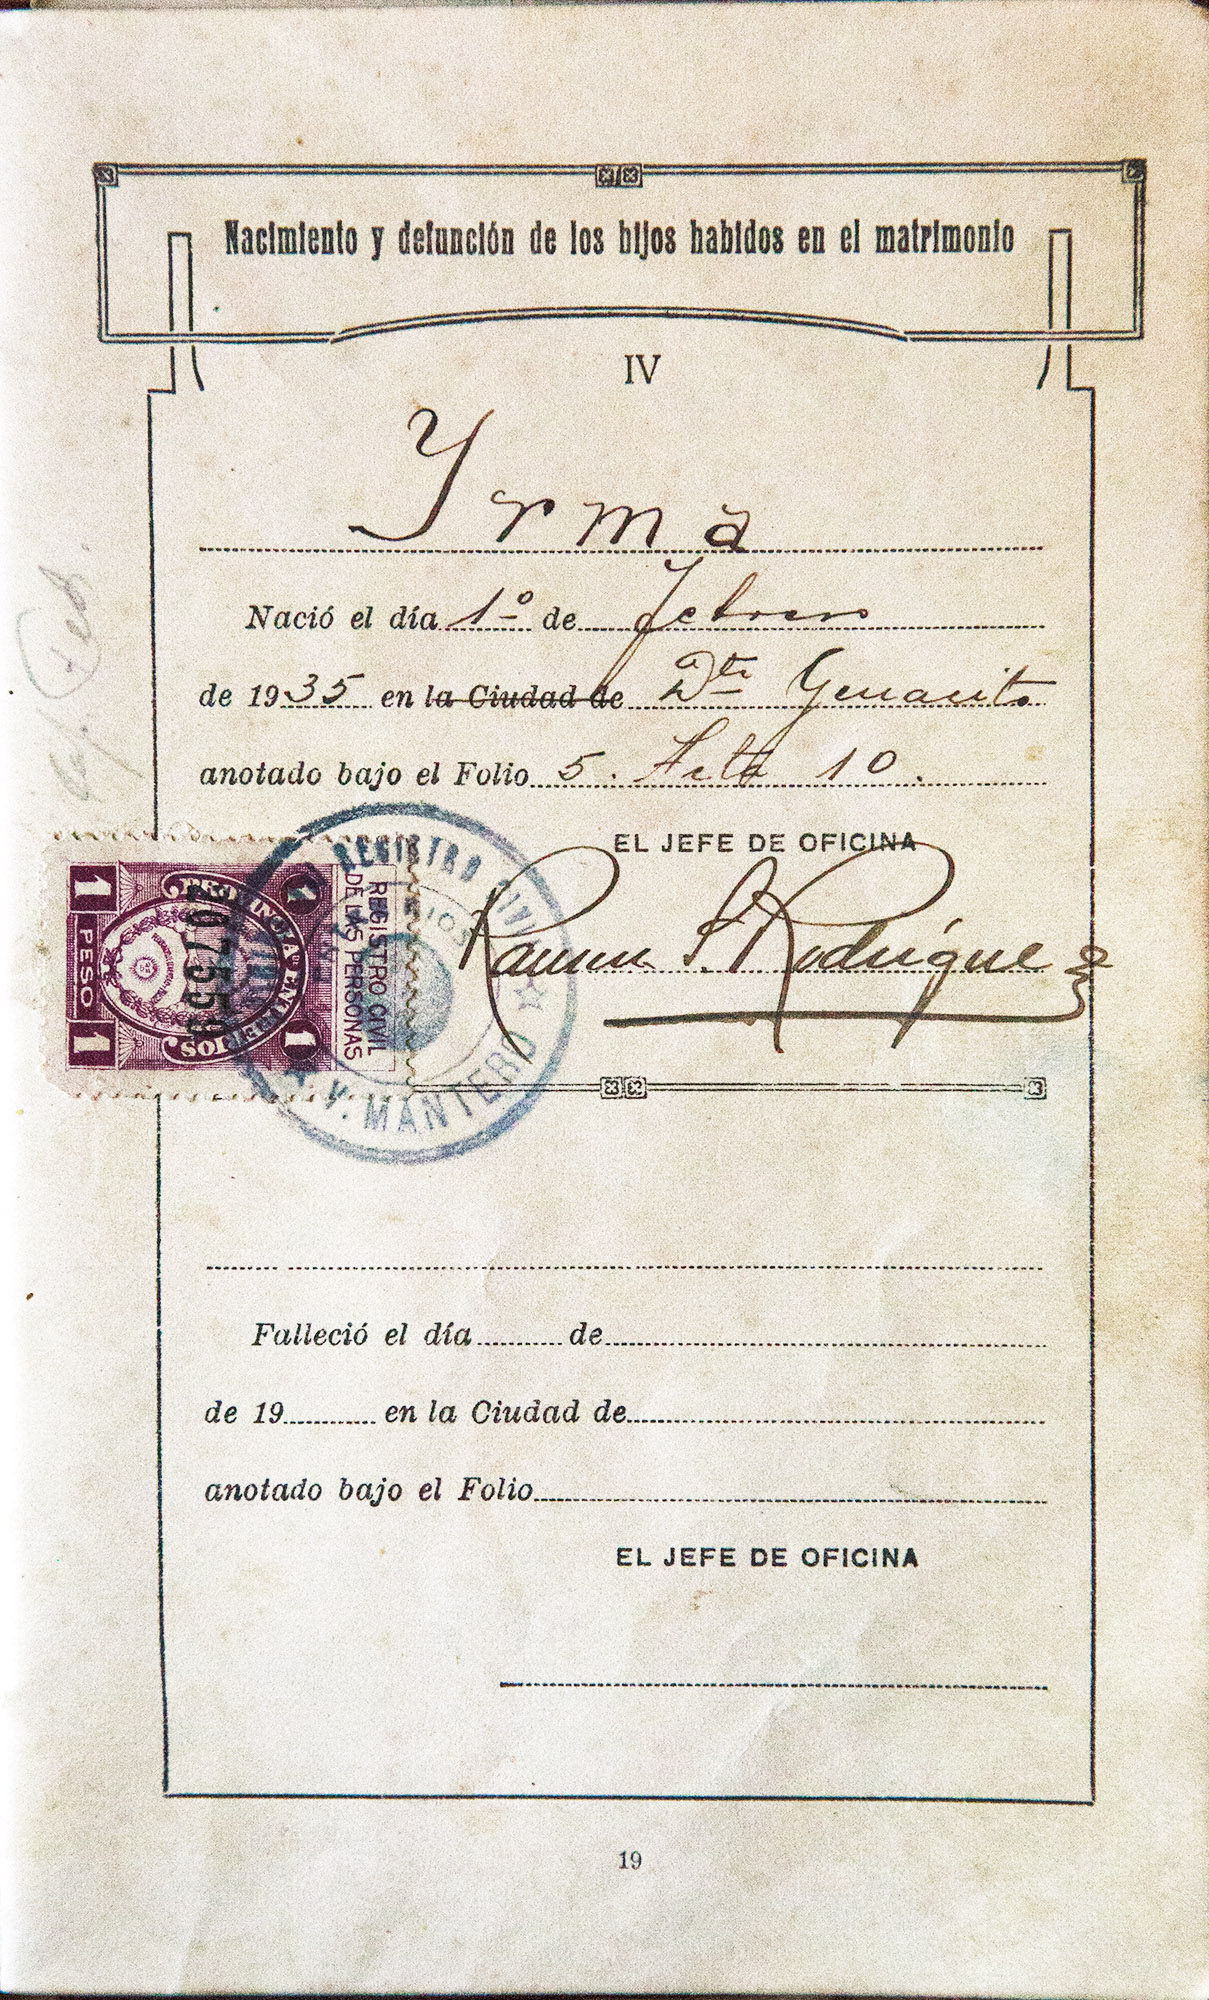 Nacimiento y defunción de los hijos habidos en el matrimonio
IV
Yrma
Nació el día 1º de Febrero
de 1935 en la Ciudad de Dto Genacito
anotado bajo el Folio 5. Acta 10.
EL JEFE DE OFICINA
Ramon S. Rodríguez
1 PESO 1
PROVINCIA ENTRE RIOS
1 1
207559
REGISTRO CIVIL
DE LAS PERSONAS
REGISTRO CIVIL
V. MANTERO
Falleció el día de
de 19 en la Ciudad de
anotado bajo el Folio
EL JEFE DE OFICINA
19